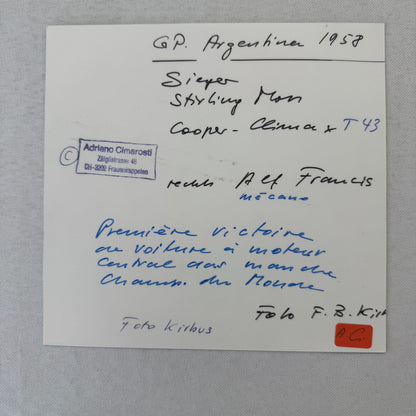 GP. Argentina 1958
Sieger
Stirling Moss
Cooper-Climax T43
© Adriano Cimarosti
Zälglistrasse 46
CH-3202 Frauenkappelen
rechts Alf Francis
mécano
Première victoire
de voiture à moteur
central das manche
Champ. du Monde
Foto F. B. Kirb
Foto Kirbus
A.C.